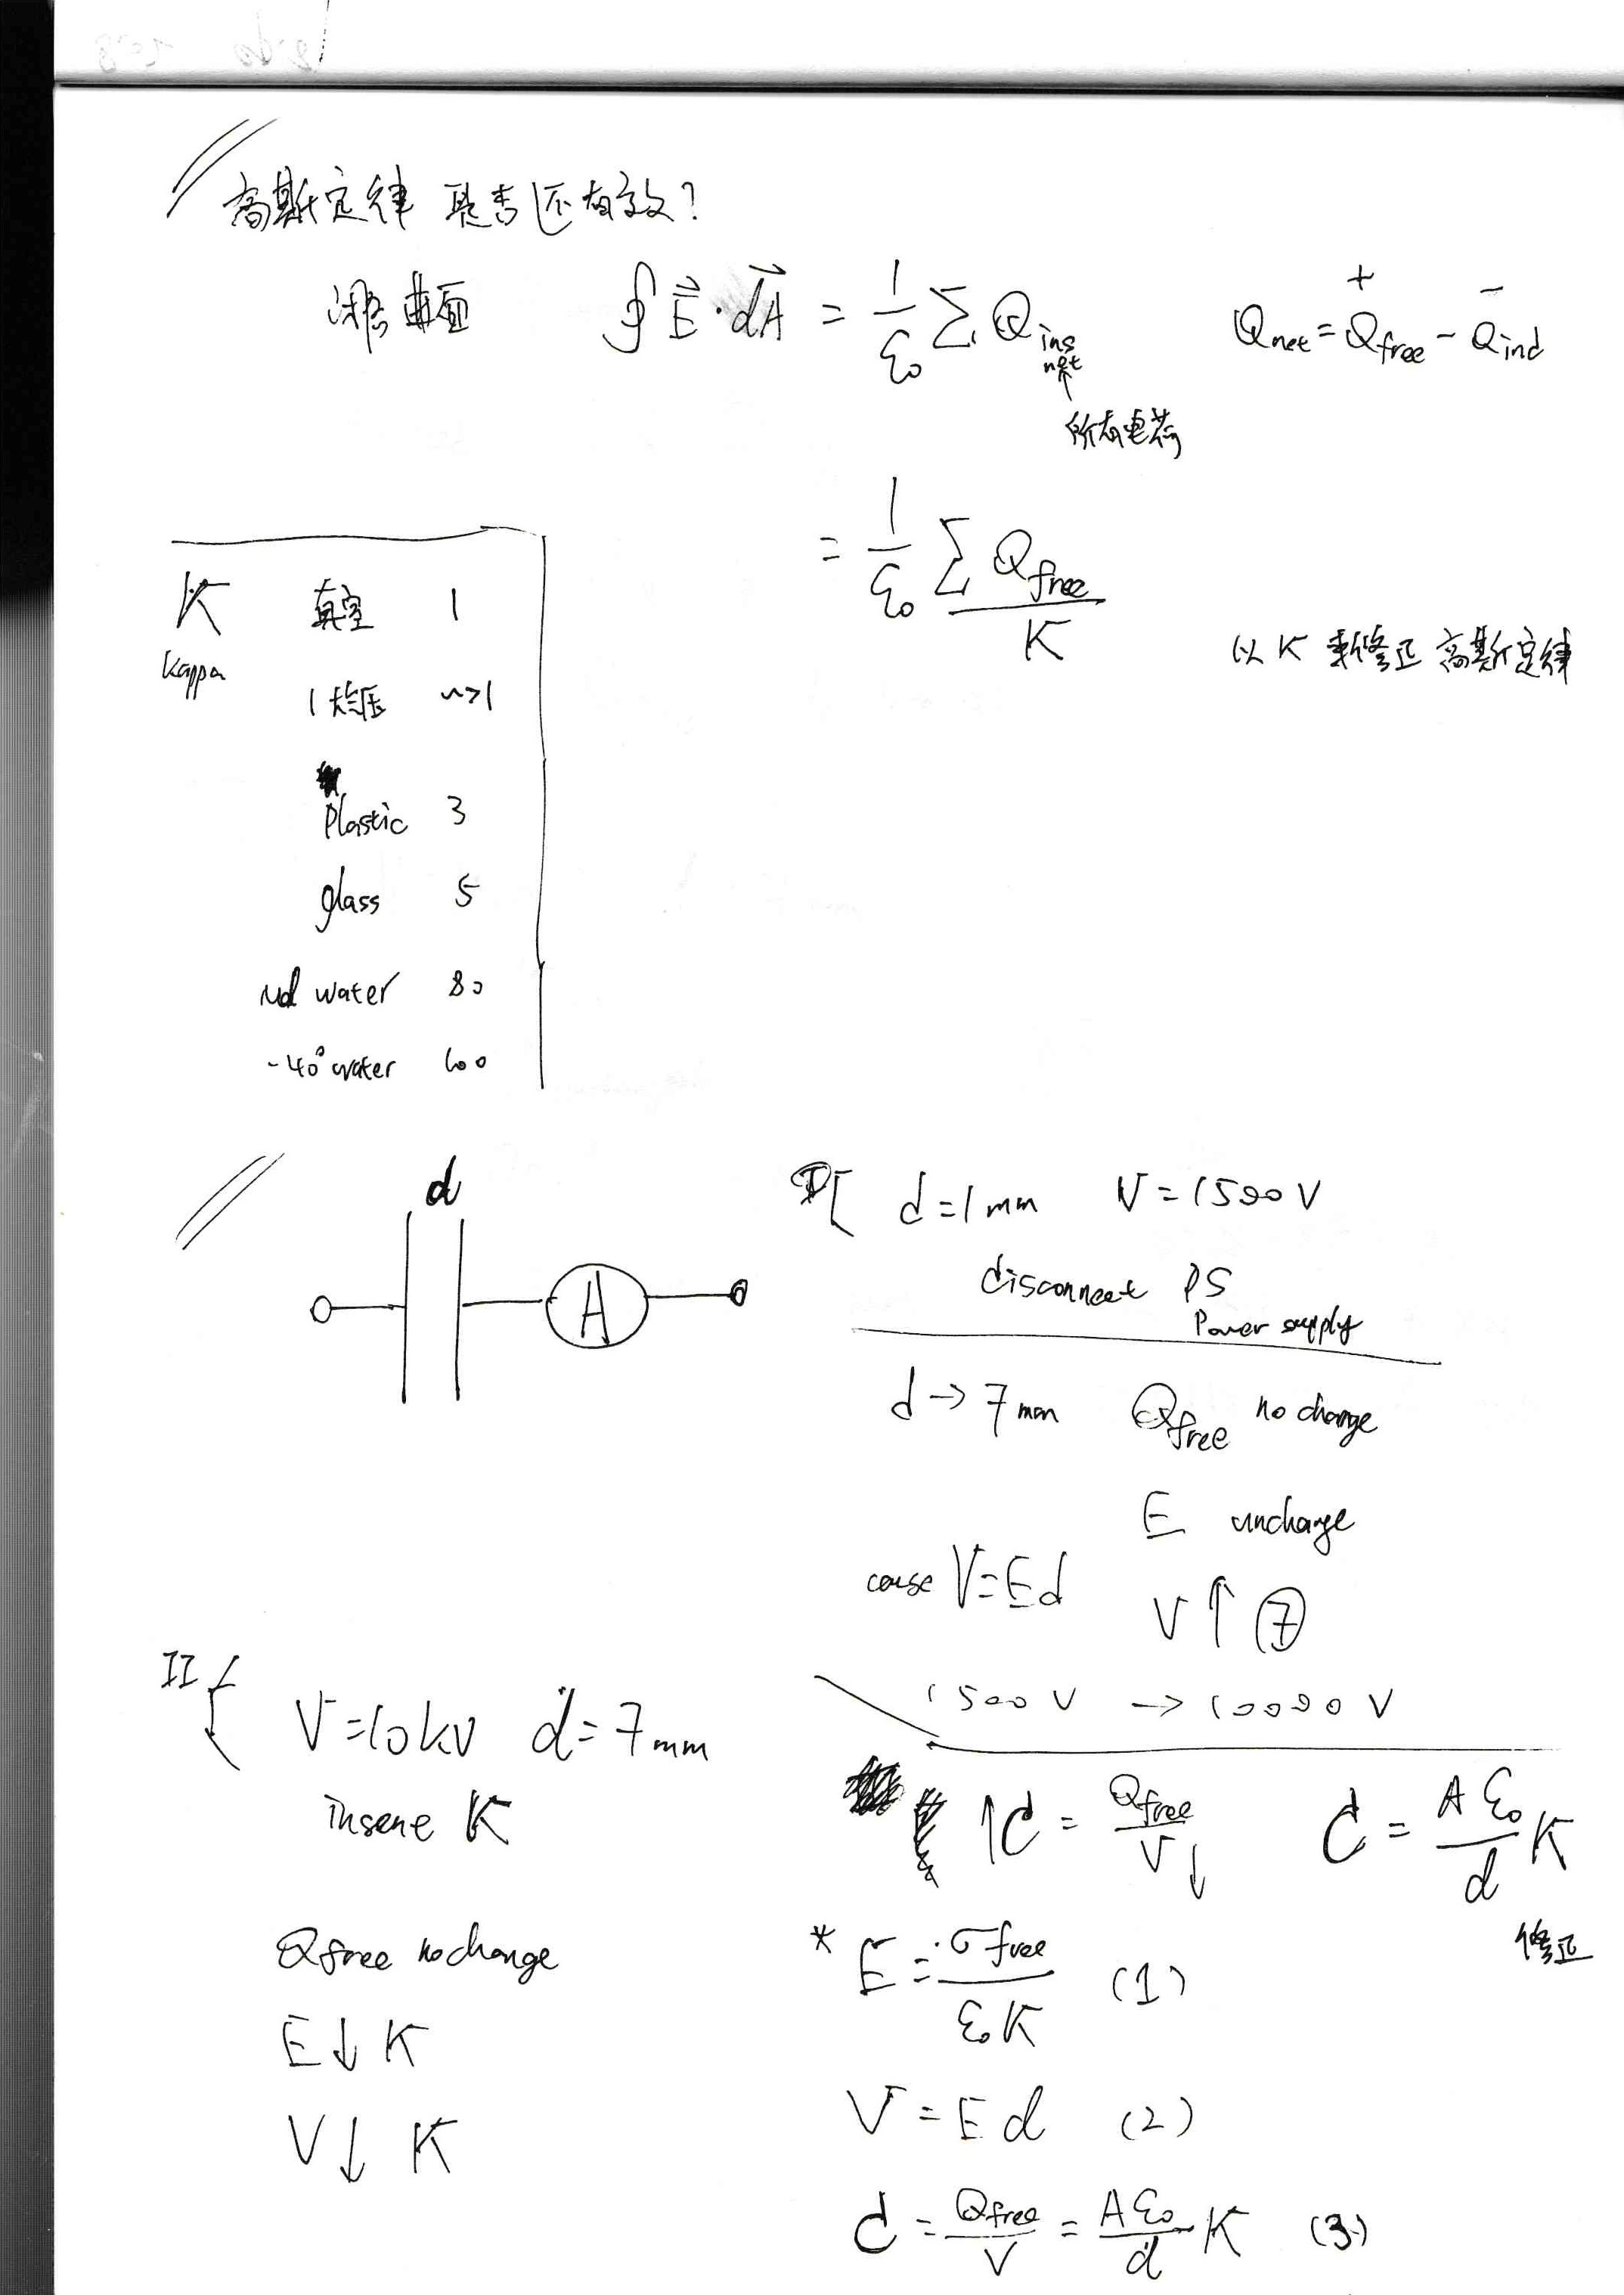 高斯定律 是否还有效?
闭合曲面 ∮ E⃗·dA⃗ = 1/ε₀ ∑ Q ins net Qnet = Qfree⁺ − Qind⁻
所有电荷
= 1/ε₀ ∑ Qfree / K
以 K 来修正 高斯定律
K 真空 1
kappa
1大气压 ~>1
Plastic 3
glass 5
water 80
-40° water 100
d
A
I [ d=1mm V=1500V
disconnect PS
Power supply
d → 7mm Qfree no change
E unchange
cause V=Ed V↑ ⑦
1500V → 10000V
II { V=10kV d=7mm
insert K
Qfree no change
E↓ K
V↓ K
↑C = Qfree / V↓ C = Aε₀/d K
修正
* E = σfree / ε₀K (1)
V = Ed (2)
C = Qfree / V = Aε₀/d K (3)